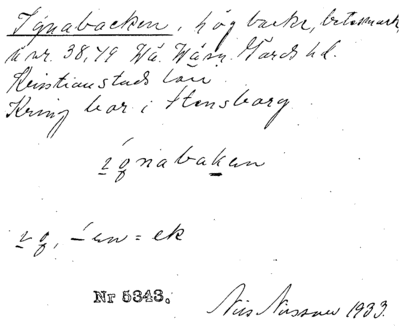 Ignabacken, hög backe, betesmark,
å nr. 38,79 Vä. Väsn. Gärds hd.
Kristianstads län
Kring bor i Stensborg
ignabaken
ig, -en = ek
Nr 5343.
Nils Nilsson 1933.